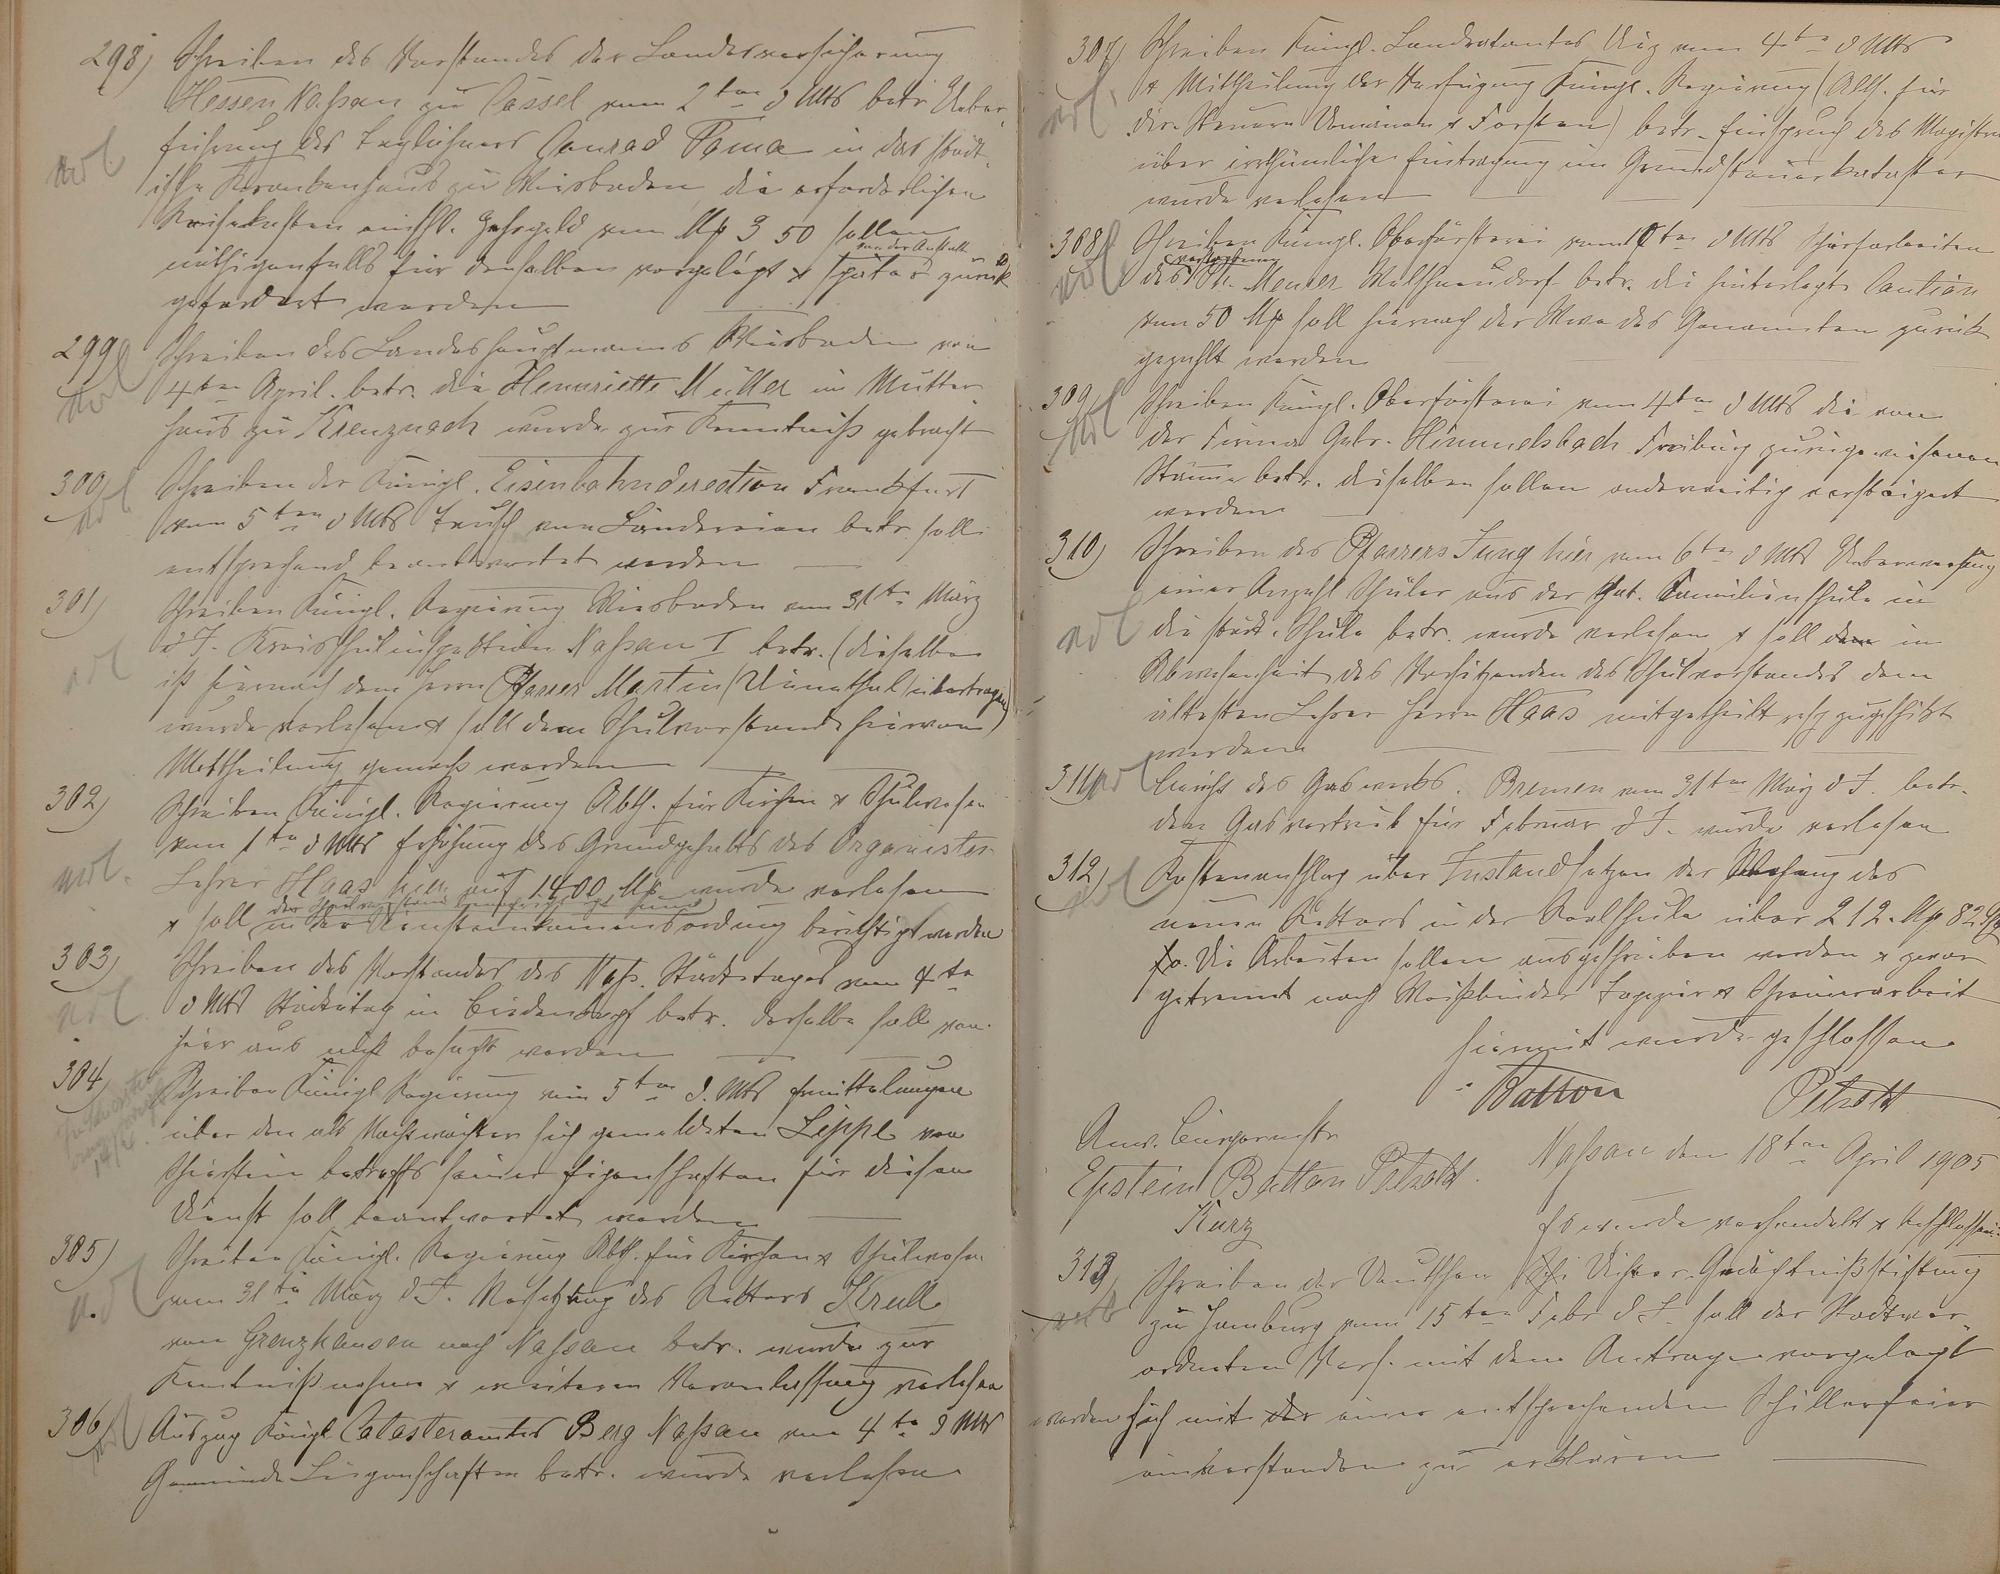 298) Schreiben des Vorstandes der Landesversicherung
Hessen Naßau zu Cassel vom 2ten d Mts betr. Ueber
führung des Taglöhners Conrad Toma in das städt-
ische Krankenhaus zu Wiesbaden, die erforderlichen
Reisekosten einschl. Zehrgeld von Mk 3 50 sollen
von der Anstalt
nöthigenfalls für denselben vorgelegt & später zurück
gefordert werden
299) Schreiben des Landeshauptmanns Wiesbaden vom
4ten April. betr. die Henriette Müller im Mutter
haus zu Kreuznach wurde zur Kenntniß gebracht
300) Schreiben der Königl. Eisenbahndirection Frankfurt
vom 5ten d Mts Tausch von Ländereien betr. soll
entsprechend beantwortet werden
301) Schreiben Königl. Regierung Wiesbaden vom 31ten März
d J. Kreisschulinspektion Naßau I betr. (dieselbe
ist hiernach dem Herrn Pfarrer Martin (Dienethal) übertragen)
wurde verlesen & soll dem Schulvorstande hiervon
Mittheilung gemacht werden
302) Schreiben Königl. Regierung Abth. für Kirchen & Schulwesen
vom 1ten d Mts Erhöhung des Grundgehalts des Organisten
Lehrer Haas hier auf 1400 Mk wurde verlesen
& soll in der Diensteinkommensordnung berichtigt werden
303) Schreiben des Vorstandes des Nass. Städtetages vom 4ten
d Mts Städtetag in Biedenkopf betr. derselbe soll von
hier aus nicht besucht werden
304) Schreiben Königl Regierung vom 5ten d. Mts Ermittelungen
über den als Nachtwächter sich gemeldeten Lippe von
Schierstein betreffs seiner Eigenschaften für diesen
Dienst soll beantwortet werden
305) Schreiben Königl. Regierung Abth. für Kirchen & Schulwesen
vom 31ten März d J. Versetzung des Rektors Krull
von Grenzhausen nach Naßau betr. wurde zur
Kenntnißnahme & weiteren Veranlassung verlesen
306) Auszug Königl Catasteramtes Berg Naßau vom 4ten d Mts
Gemeinde Liegenschaften betr. wurde verlesen
307) Schreiben Königl. Landratamtes Diez vom 4ten d Mts
& Mittheilung der Verfügung Königl. Regierung (Abth. für
dir. Steuern Domänen & Forsten) betr. Einspruch des Magistrats
über irrthümliche Eintragung im Grundsteuerkataster
wurde verlesen
308) Schreiben Königl. Oberförsterei vom ten d Mts Schürfarbeiten
verstorbenen
des Meuser betr. die hinterlegte Caution
von 50 Mk soll hiernach der Wwe des Genannten zurück
gezahlt werden
309) Schreiben Königl. Oberförsterei vom 4ten d Mts die von
der Firma Gebr. Himmelsbach Freiburg zurückgewiesenen
Stämme betr. dieselben sollen anderweitig versteigert
werden
310) Schreiben des Pfarrers Jung hier vom 6ten d Mts Ueberweisung
einer Anzahl Schüler aus der Familienschule in
die städt. Schule betr. wurde verlesen & soll in
Abwesenheit des Vorsitzenden des Schulvorstandes dem
ältesten Lehrer Herrn Haas mitgetheilt resp zugeschickt
werden
311) Bericht des Gaswerks. Bremen vom 31ten März d J. betr.
den Gasvertrieb für Februar d J. wurde verlesen
312) Kostenanschlag über Instandsetzen der Wohnung des
neuen Rektors in der Realschule über 212. Mk 82 Pfg
Die Arbeiten sollen ausgeschrieben werden & zwar
getrennt nach Weißbinder Tapezier & Schreinerarbeit
hiermit wurde geschlossen
Batton Petzold
Anw. Bürgermstr
Epstein Batton Petzold
Kurz
Naßau den 18ten April 1905
Es wurde verhandelt & beschlossen:
313) Schreiben der Deutschen Dichter-Gedächtnißstiftung
zu Hamburg vom 15ten Febr d J. soll der Stadtver-
ordneten Vers. mit dem Antrage vorgelegt
werden sich mit einer entsprechenden Schillerfeier
einverstanden zu erklären